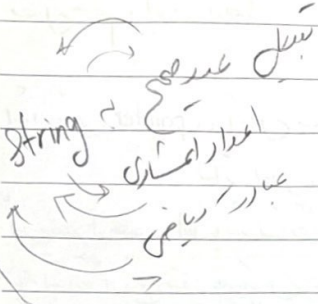 تبدیل عدد صحیح به string
اعداد اعشاری
عبارت ریاضی